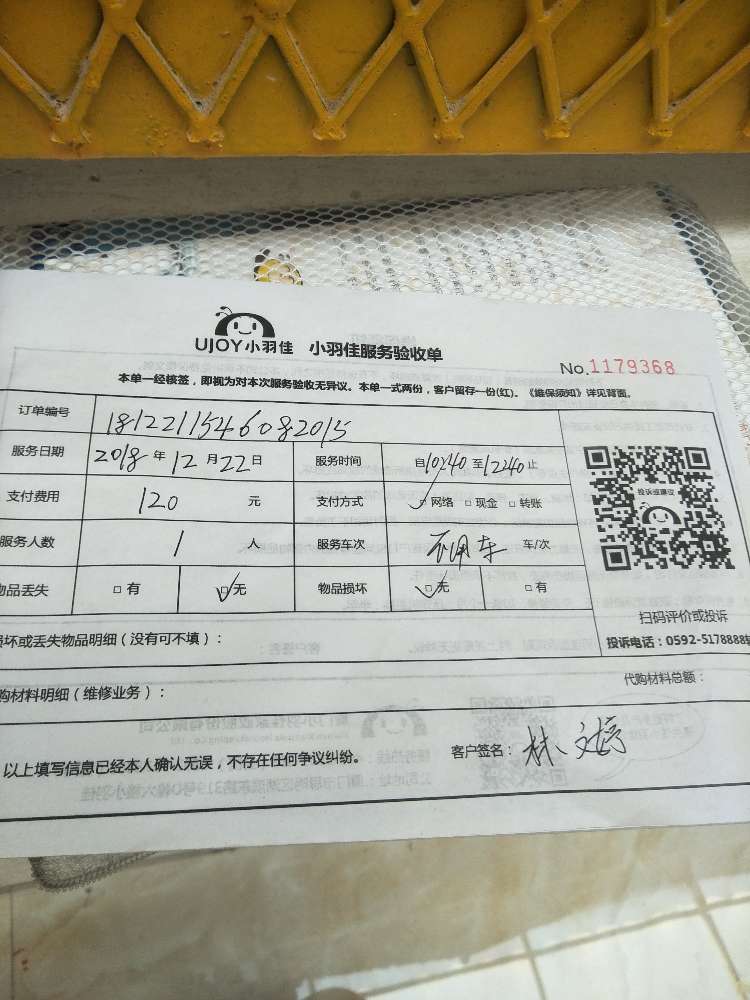 UJOY小羽佳 小羽佳服务验收单
No.1179368
本单一经核签，即视为对本次服务验收无异议。本单一式两份，客户留存一份(红)。《维保须知》详见背面。
订单编号 1812211546082015
服务日期 2018 年 12 月 22 日 服务时间 自10:40 至12:40 止
支付费用 120 元 支付方式 ☑ 网络 □ 现金 □ 转账
服务人数 1 人 服务车次 不用车 车/次
物品丢失 □ 有 ☑ 无 物品损坏 ☑ 无 □ 有
投诉或建议
扫码评价或投诉
投诉电话：0592-5178888
损坏或丢失物品明细（没有可不填）：
购材料明细（维修业务）： 代购材料总额：
以上填写信息已经本人确认无误，不存在任何争议纠纷。 客户签名： 林文婷